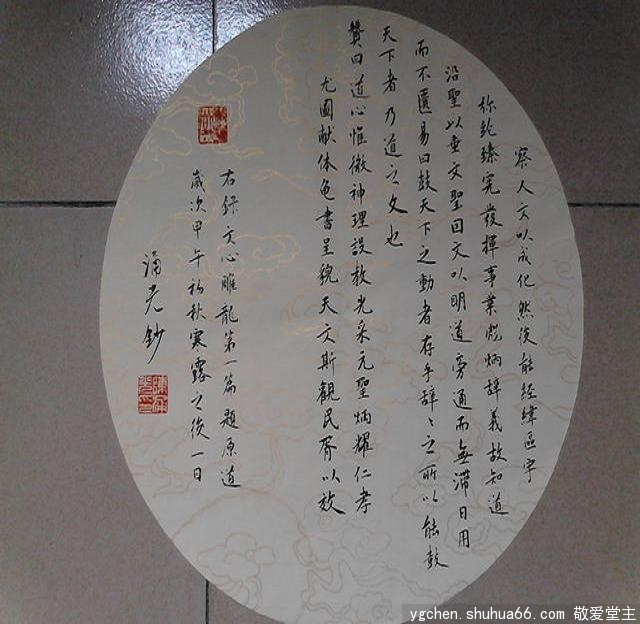 察人文以成化然後能經緯區宇
弥纶 發揮事業彪炳辭義故知道
沿聖以垂文聖因文以明道旁通而無滯日用
而不匱易曰鼓天下之動者存乎辭〻之所以能鼓
天下者乃道之文也
贊曰道心惟微神理設教光采元聖炳耀仁孝
龙圖献体龟書呈貌天文斯觀民胥以效
右錄文心雕龍第一篇題原道
歲次甲午初秋寒露之後一日
涌光鈔
ygchen.shuhua66.com 敬爱堂主